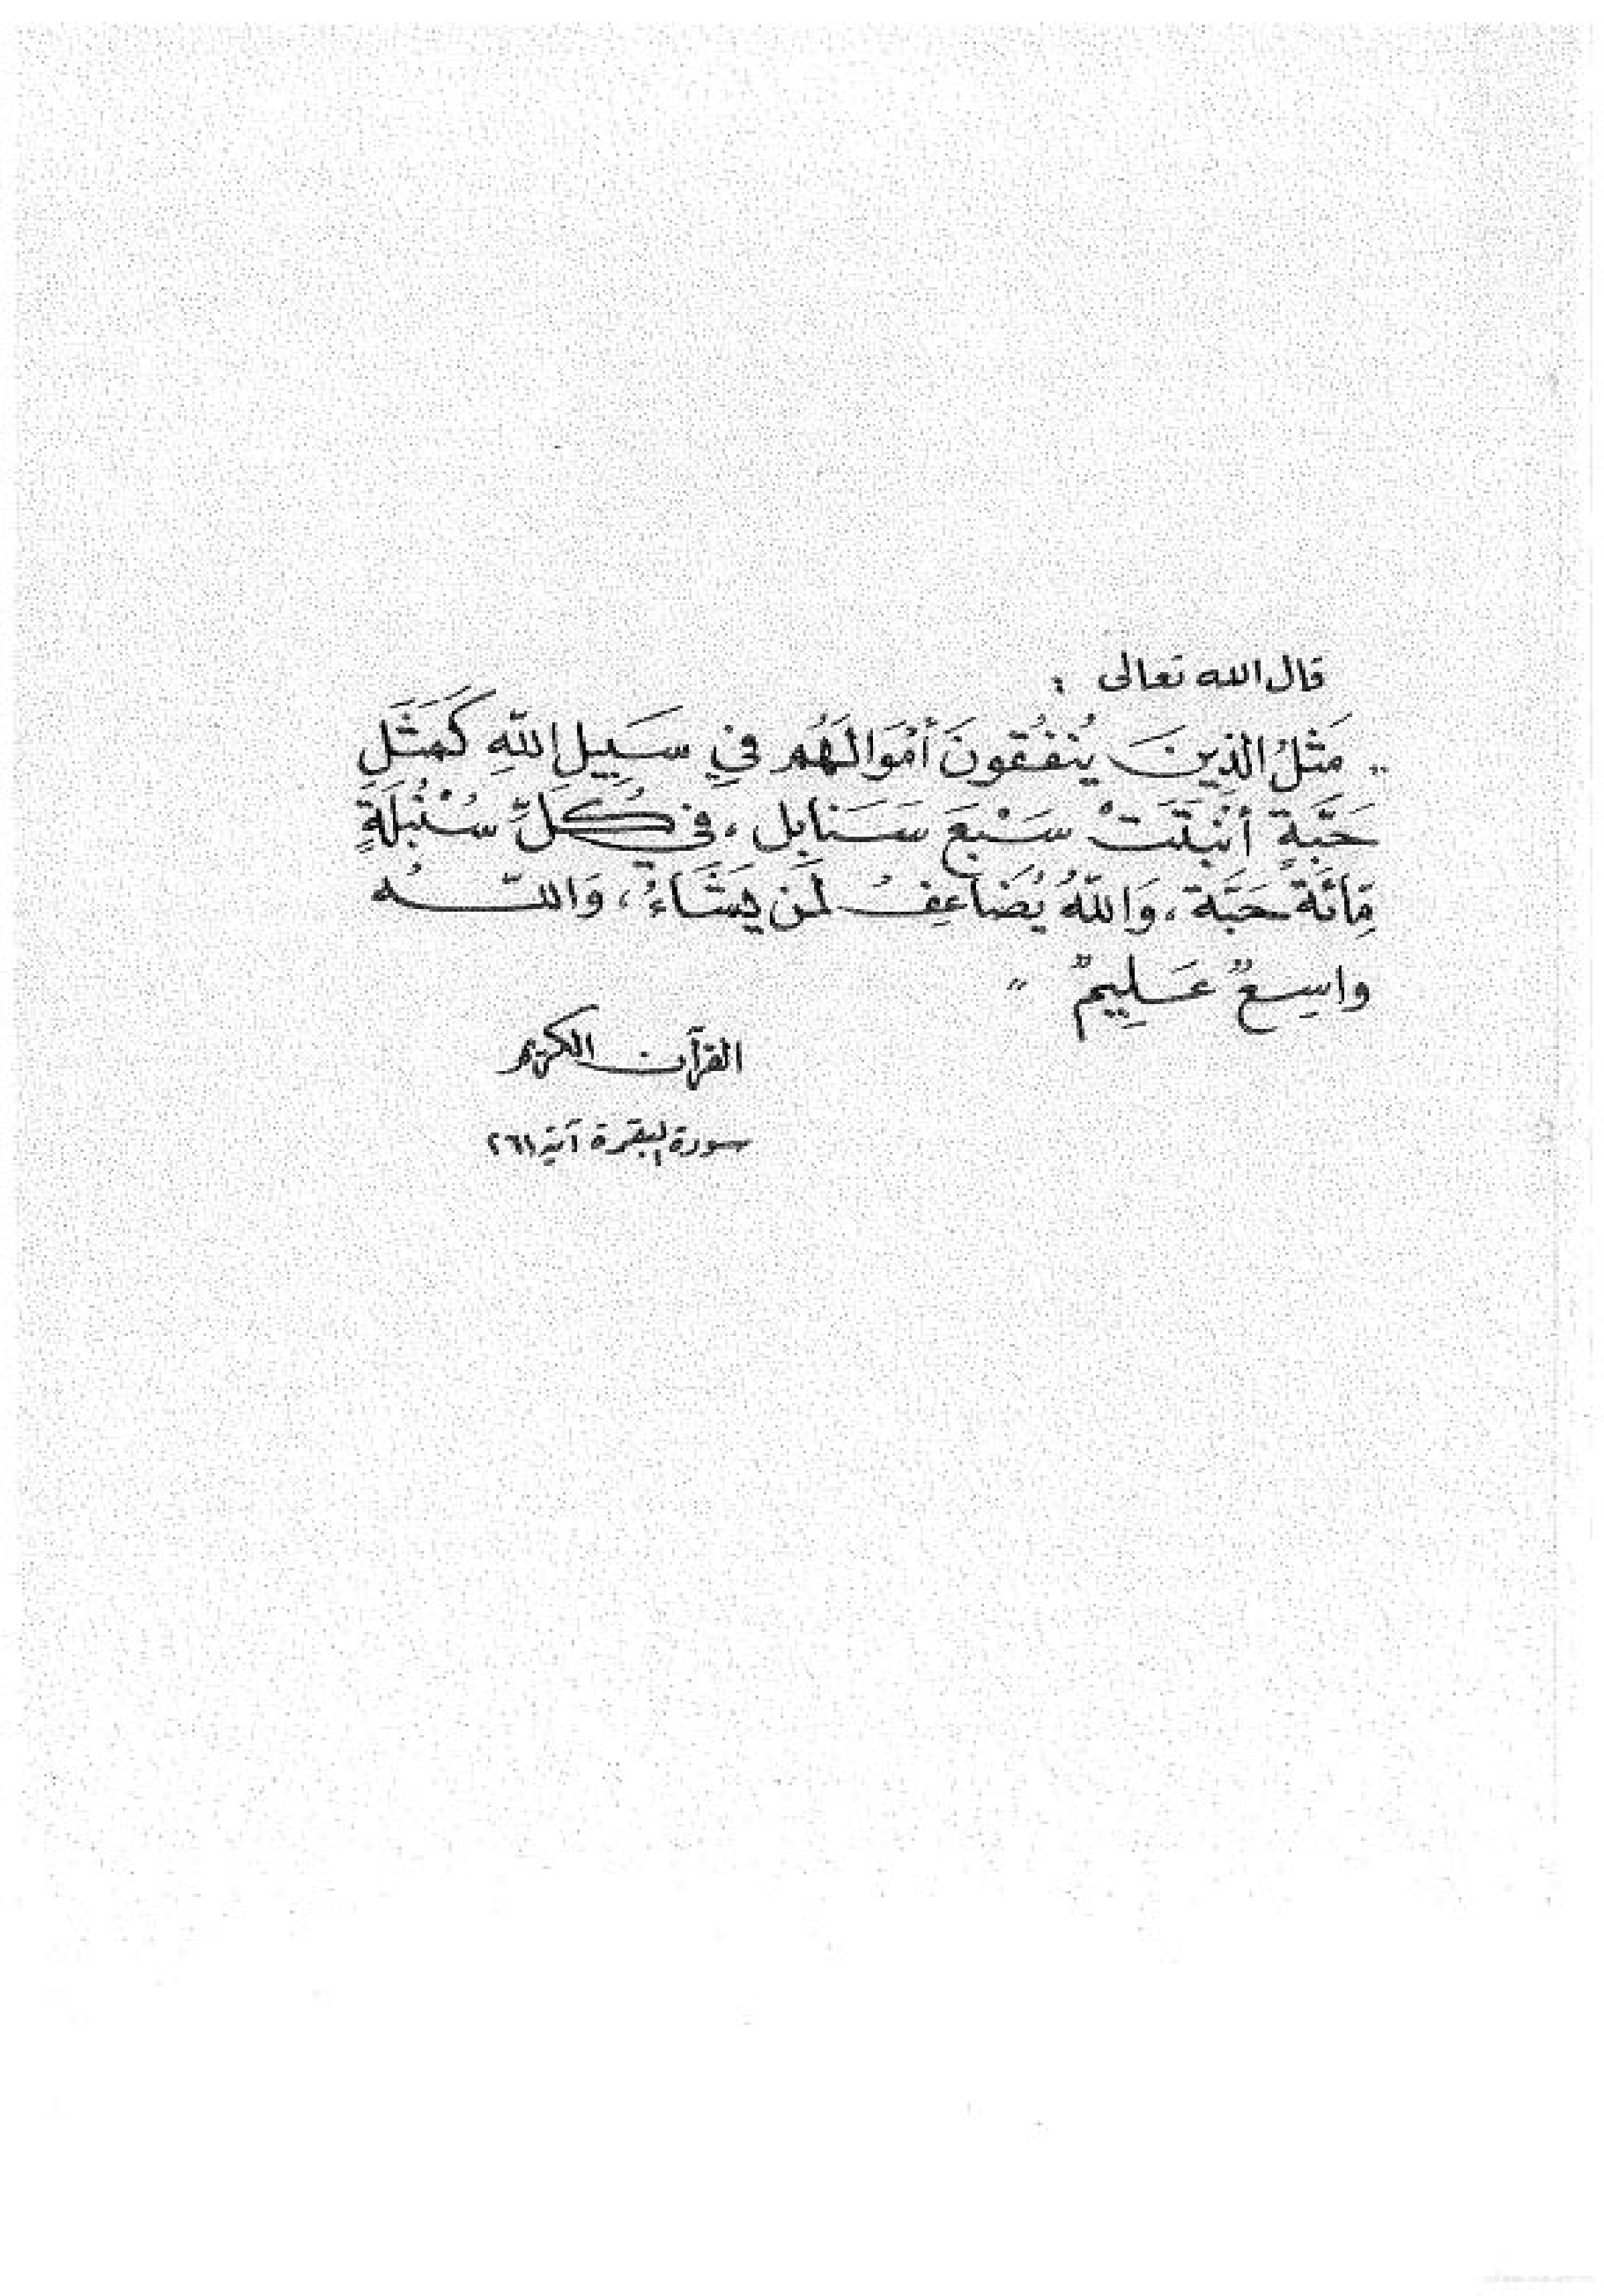 قال الله تعالى :
" مَثَلُ الذِينَ يُنفُقونَ أمْوَالَهُم فيِ سَبِيلِ اللّهِ كَمَثَلِ
حَبَّةٍ أنْبَتَتْ سَبْعَ سَنابِل ، في كُلِّ سُنْبُلَةٍ
مِائَة حَبَّة ، وَاللّهُ يُضَاعِفُ لمَن يَشَاءُ ، وَاللّهُ
واسِعٌ عَلِيمٌ "
القرآن الكريم
سورة البقرة آية ٢٦١